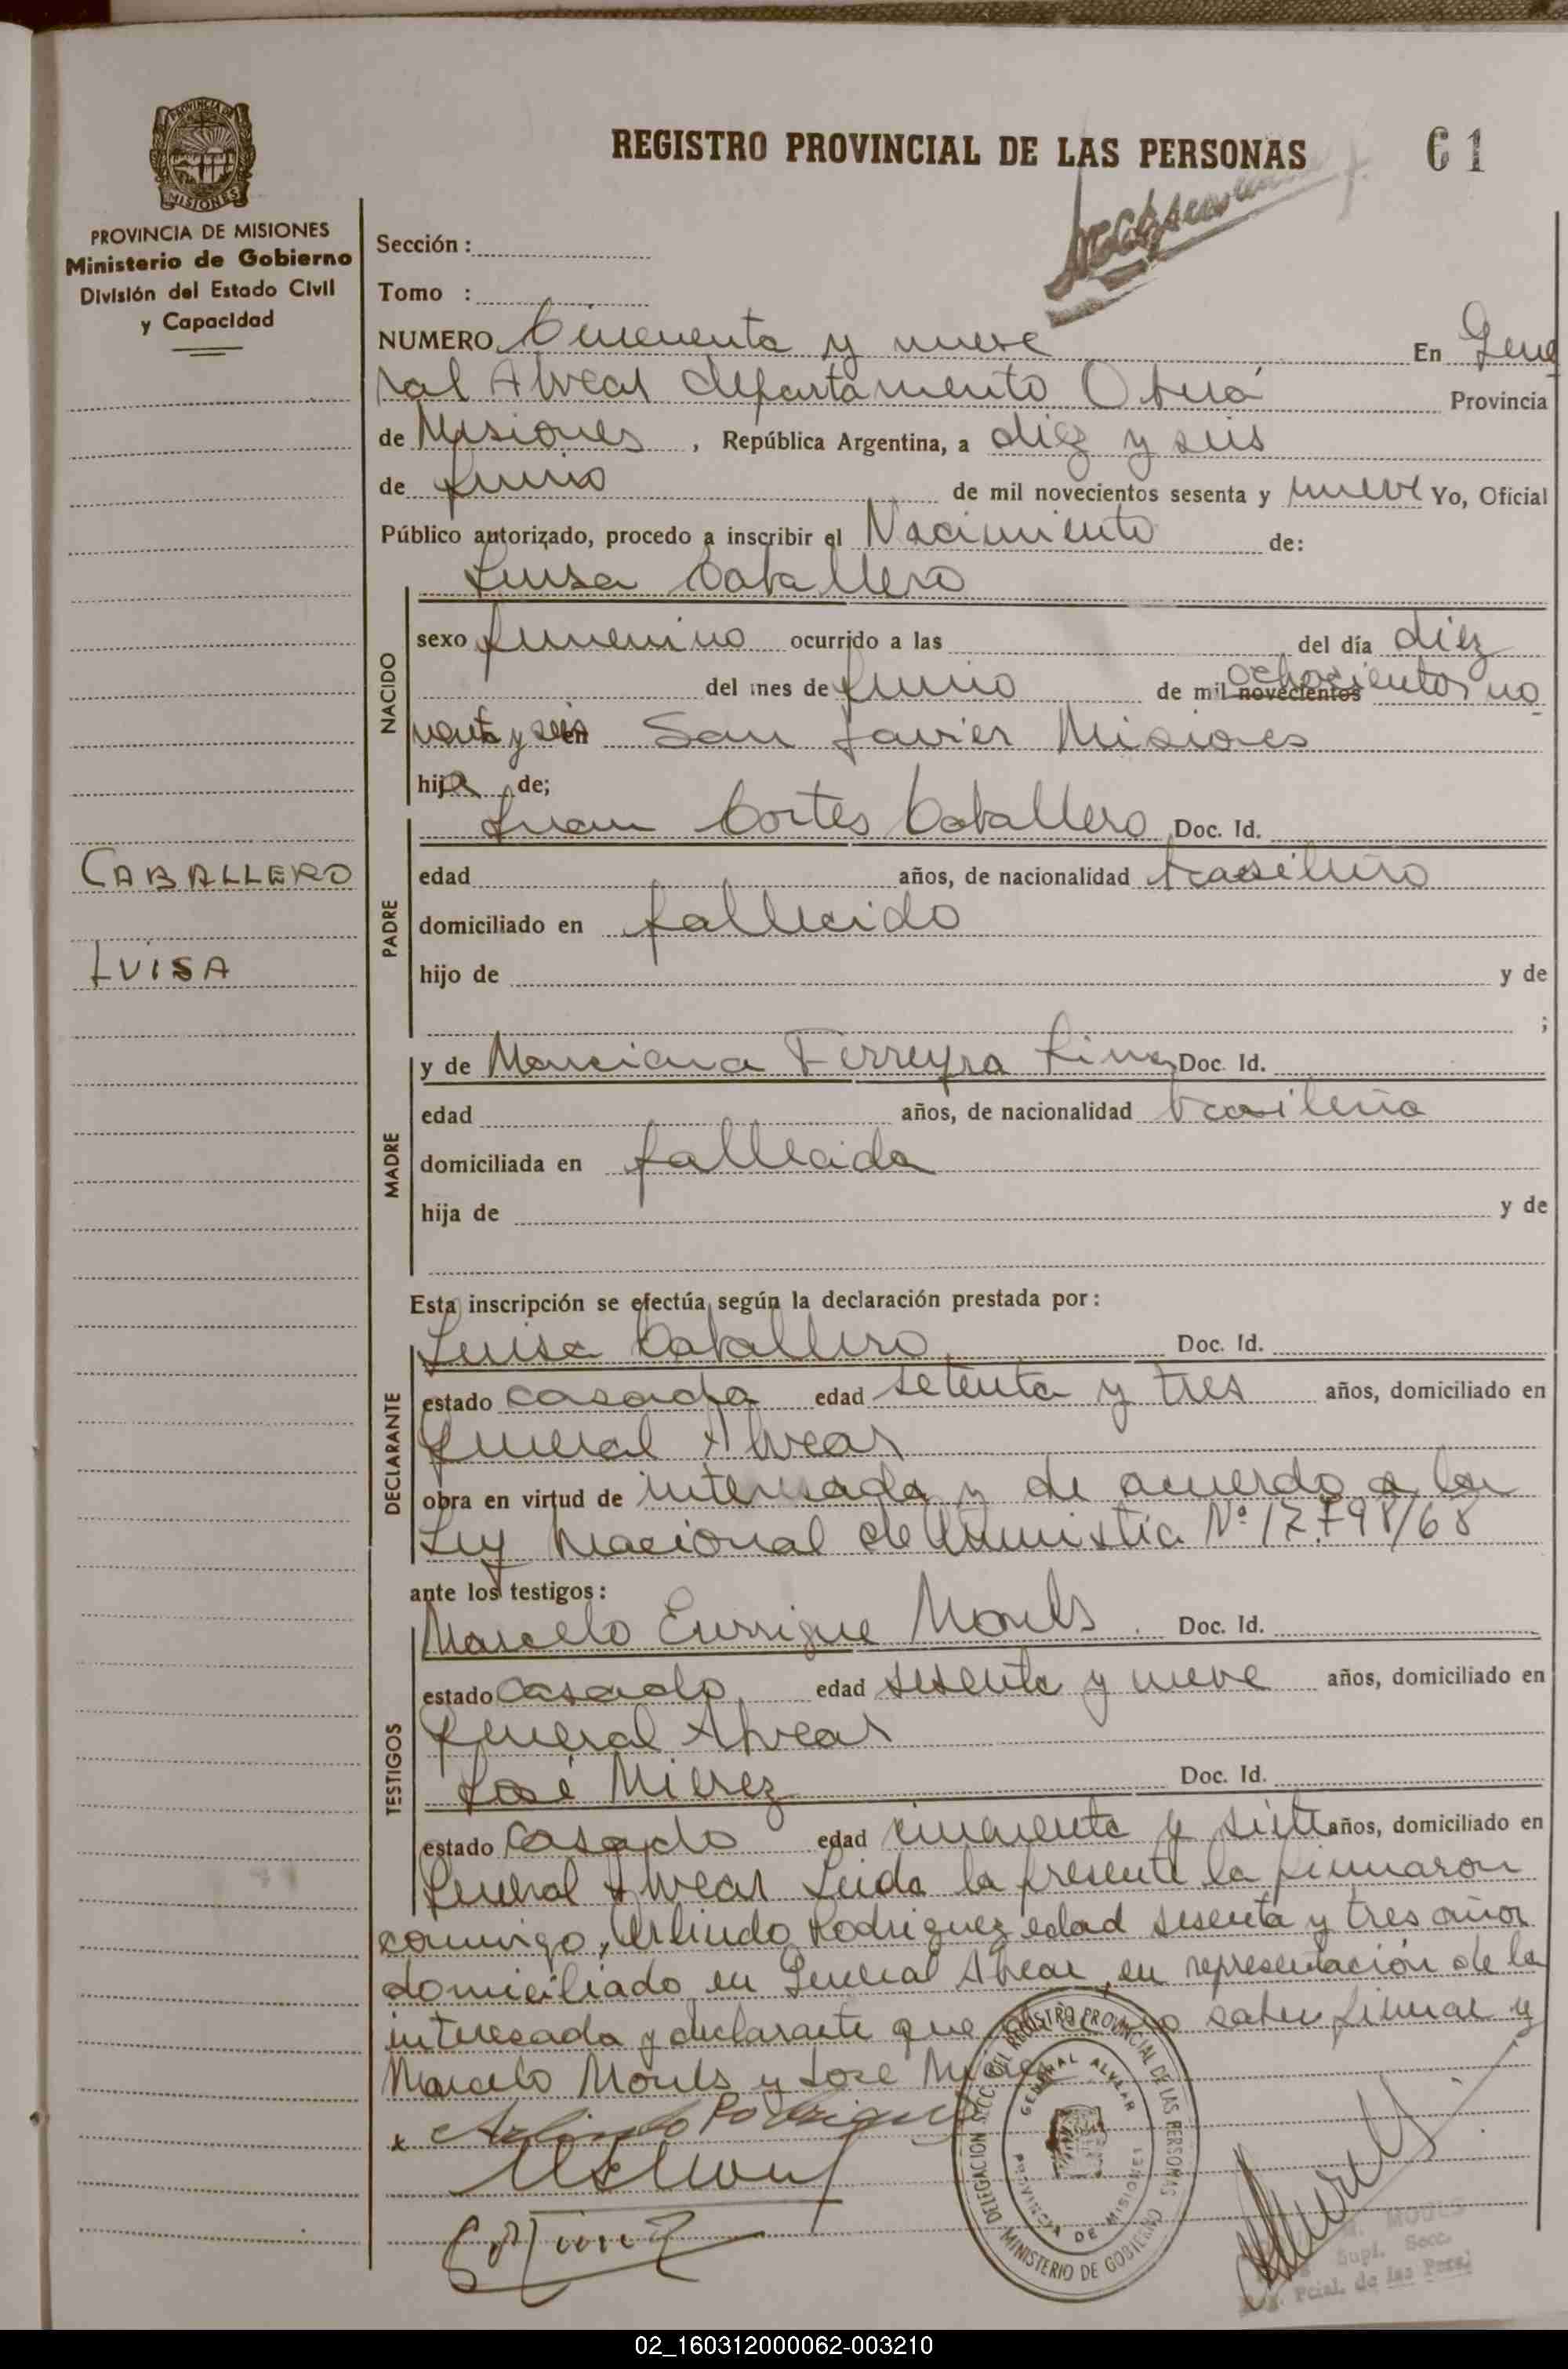 REGISTRO PROVINCIAL DE LAS PERSONAS
61
PROVINCIA DE
MISIONES
PROVINCIA DE MISIONES
Ministerio de Gobierno
División del Estado Civil
y Capacidad
Sección :
Tomo :
NUMERO Cincuenta y nueve En Gene
ral Alvear departamento Oberá Provincia
de Misiones , República Argentina, a diez y seis
de Junio de mil novecientos sesenta y nueve Yo, Oficial
Público autorizado, procedo a inscribir el Nacimiento de:
Luisa Caballero
NACIDO
sexo femenino ocurrido a las del día diez
del mes de Junio de mil novecientos ochocientos no
venta y seis en San Javier Misiones
hija de;
PADRE
Juan Cortes Caballero Doc. Id.
CABALLERO
edad años, de nacionalidad brasileño
domiciliado en fallecido
LUISA
hijo de y de
;
MADRE
y de Marciana Ferreyra Lima Doc. Id.
edad años, de nacionalidad brasileña
domiciliada en fallecida
hija de y de
Esta inscripción se efectúa según la declaración prestada por:
DECLARANTE
Luisa Caballero Doc. Id.
estado casada edad setenta y tres años, domiciliado en
General Alvear
obra en virtud de interesada y de acuerdo a la
Ley Nacional de Amnistia Nº 17.798/68
ante los testigos:
TESTIGOS
Marcelo Enrrique Mouls Doc. Id.
estado casado edad sesenta y nueve años, domiciliado en
General Alvear
José Mierez Doc. Id.
estado Casado edad cincuenta y siete años, domiciliado en
General Alvear Leida la presente la firmaron
conmigo, Arlindo Rodriguez edad sesenta y tres años
domiciliado en General Alvear, en representación de la
interesada y declarante que no saber firmar y
Marcelo Mouls y José Mierez
x Arlindo Rodriguez
DELEGACION SECC. DEL REGISTRO PROVINCIAL DE LAS PERSONAS
MINISTERIO DE GOBIERNO
GENERAL ALVEAR
PROVINCIA DE MISIONES
MOULS
Supl. Secc.
Pcial. de las Pers.
02_160312000062-003210